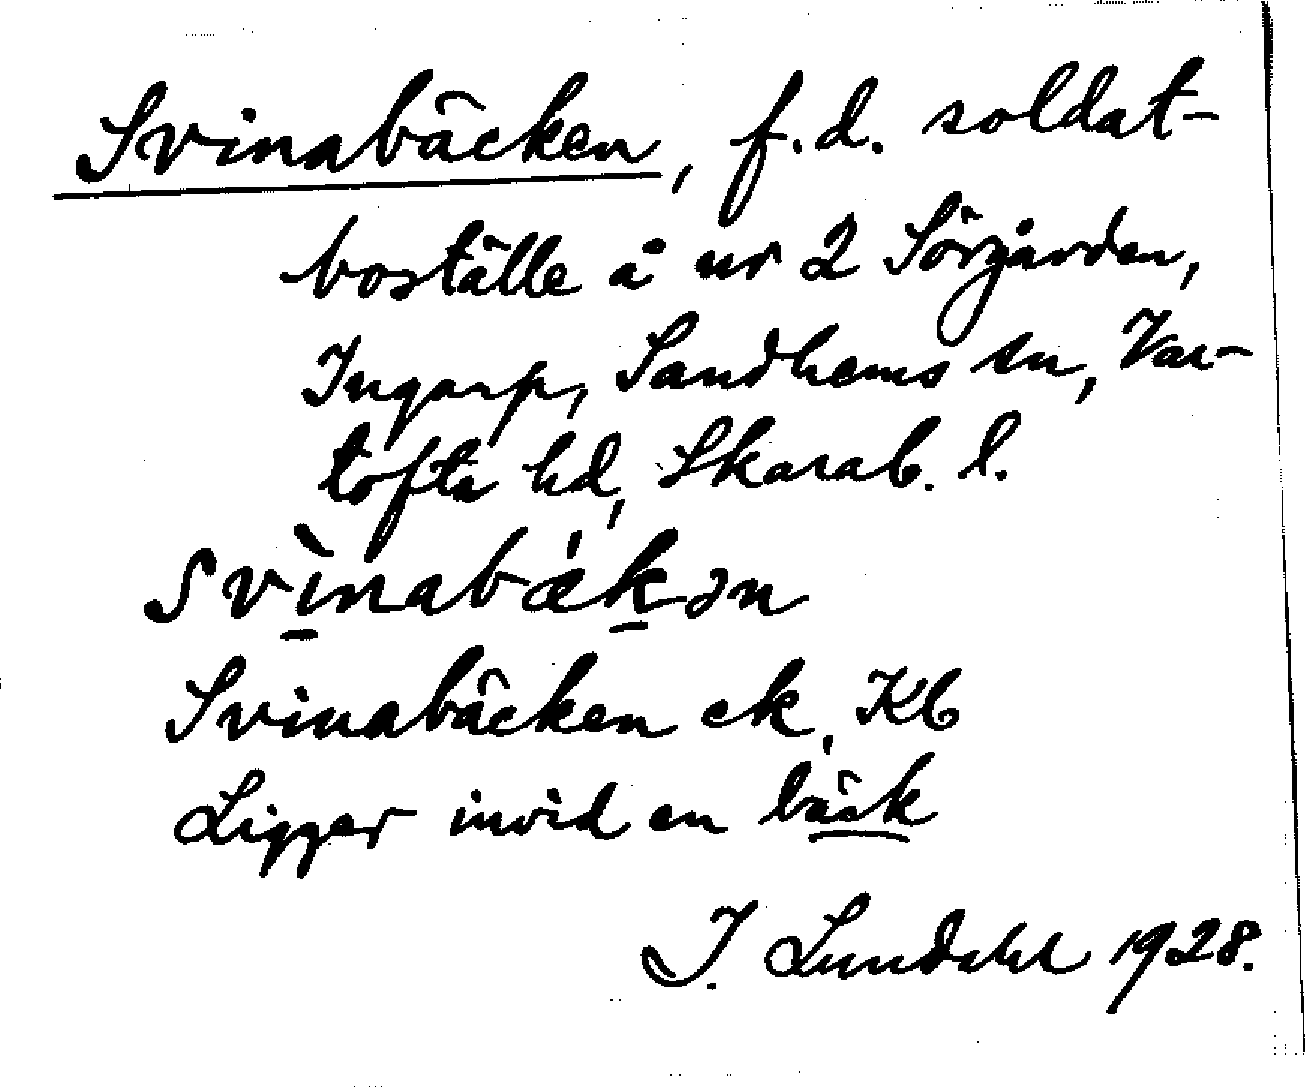 Svinabäcken, f.d. soldat-
boställe å nr 2 Sörgården,
Ingarp, Sandhems sn, Var-
tofta hd, Skarab. l.
svìnabǽkən
Svinabäcken ek, Kb
Ligger invid en bäck
I. Lundahl 1928.